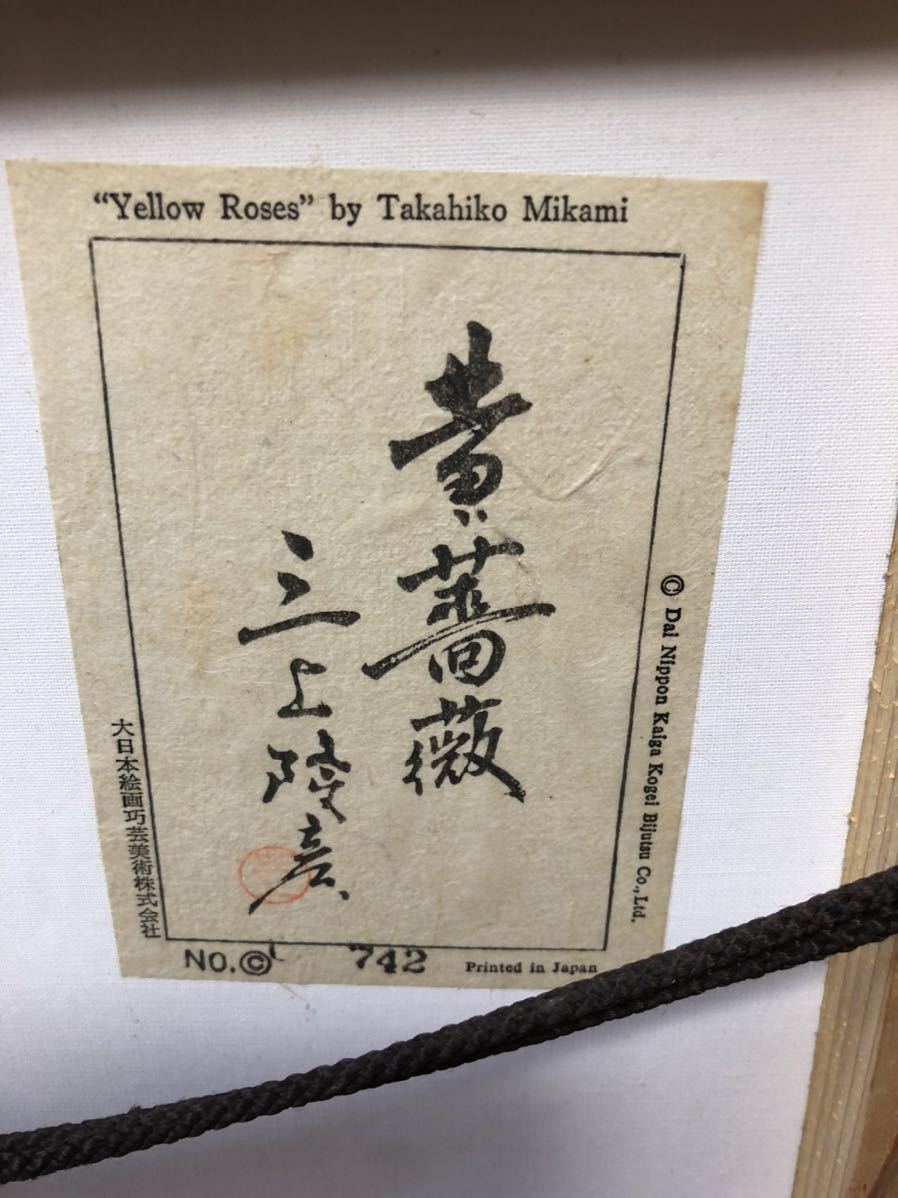 “Yellow Roses” by Takahiko Mikami
黄薔薇
三上隆彦
© Dai Nippon Kaiga Kogei Bijutsu Co., Ltd.
大日本絵画巧芸美術株式会社
NO.© 742
Printed in Japan